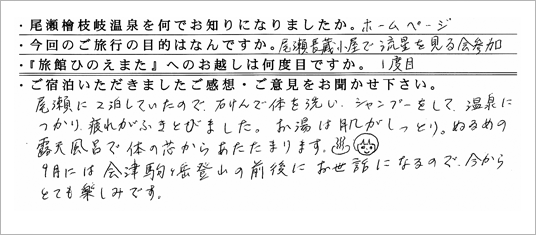 ・尾瀬檜枝岐温泉を何でお知りになりましたか。ホームページ
・今回のご旅行の目的はなんですか。尾瀬長蔵小屋で流星を見る会参加
・『旅館ひのえまた』へのお越しは何度目ですか。 1度目
・ご宿泊いただきましたご感想・ご意見をお聞かせ下さい。
尾瀬に2泊していたので、石けんで体を洗い、シャンプーをして、温泉に
つかり、疲れがふきとびました。お湯は肌がしっとり。ぬるめの
露天風呂で体の芯からあたたまります。
9月には会津駒ヶ岳登山の前後にお世話になるので、今から
とても楽しみです。